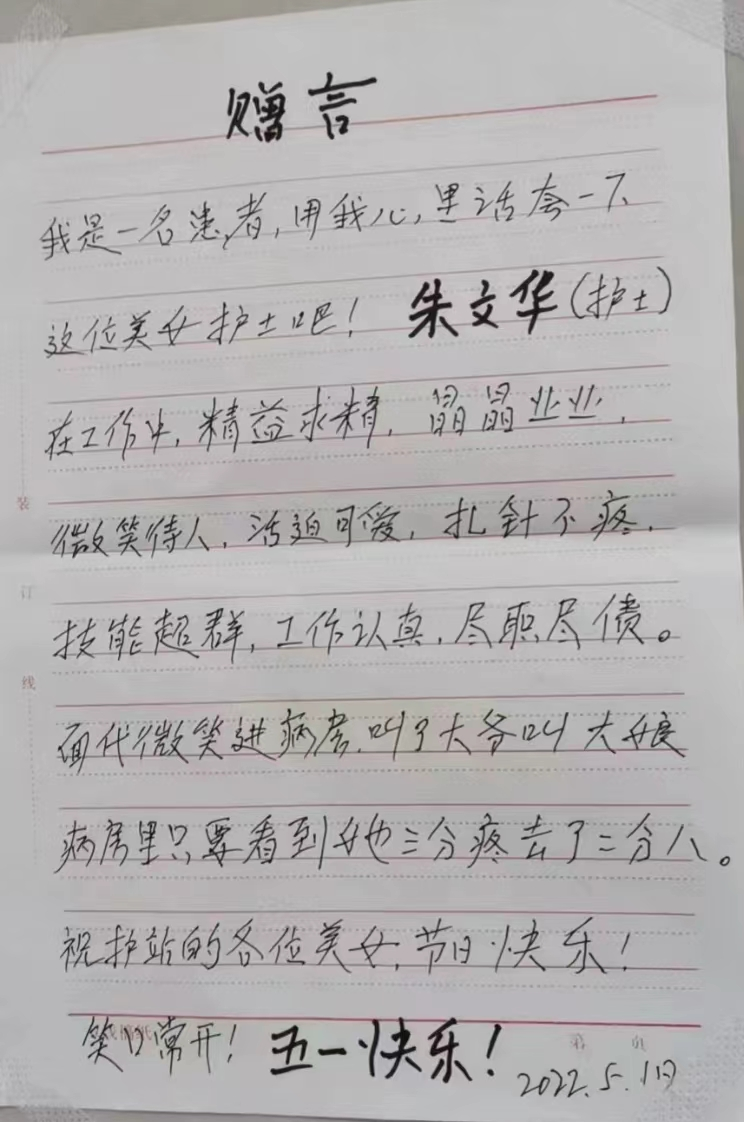 赠言
我是一名患者,用我心,里话夸一下
这位美女护士吧! 朱文华(护士)
在工作中,精益求精,晶晶业业,
微笑待人,活迫可爱,扎针不疼,
技能超群,工作认真,尽职尽债。
面代微笑进病房,叫了大爷叫大娘
病房里只要看到她三分疼去了二分八。
祝护站的各位美女,节日快乐!
笑口常开! 五一快乐! 2022.5.1日
装
订
线
第 页